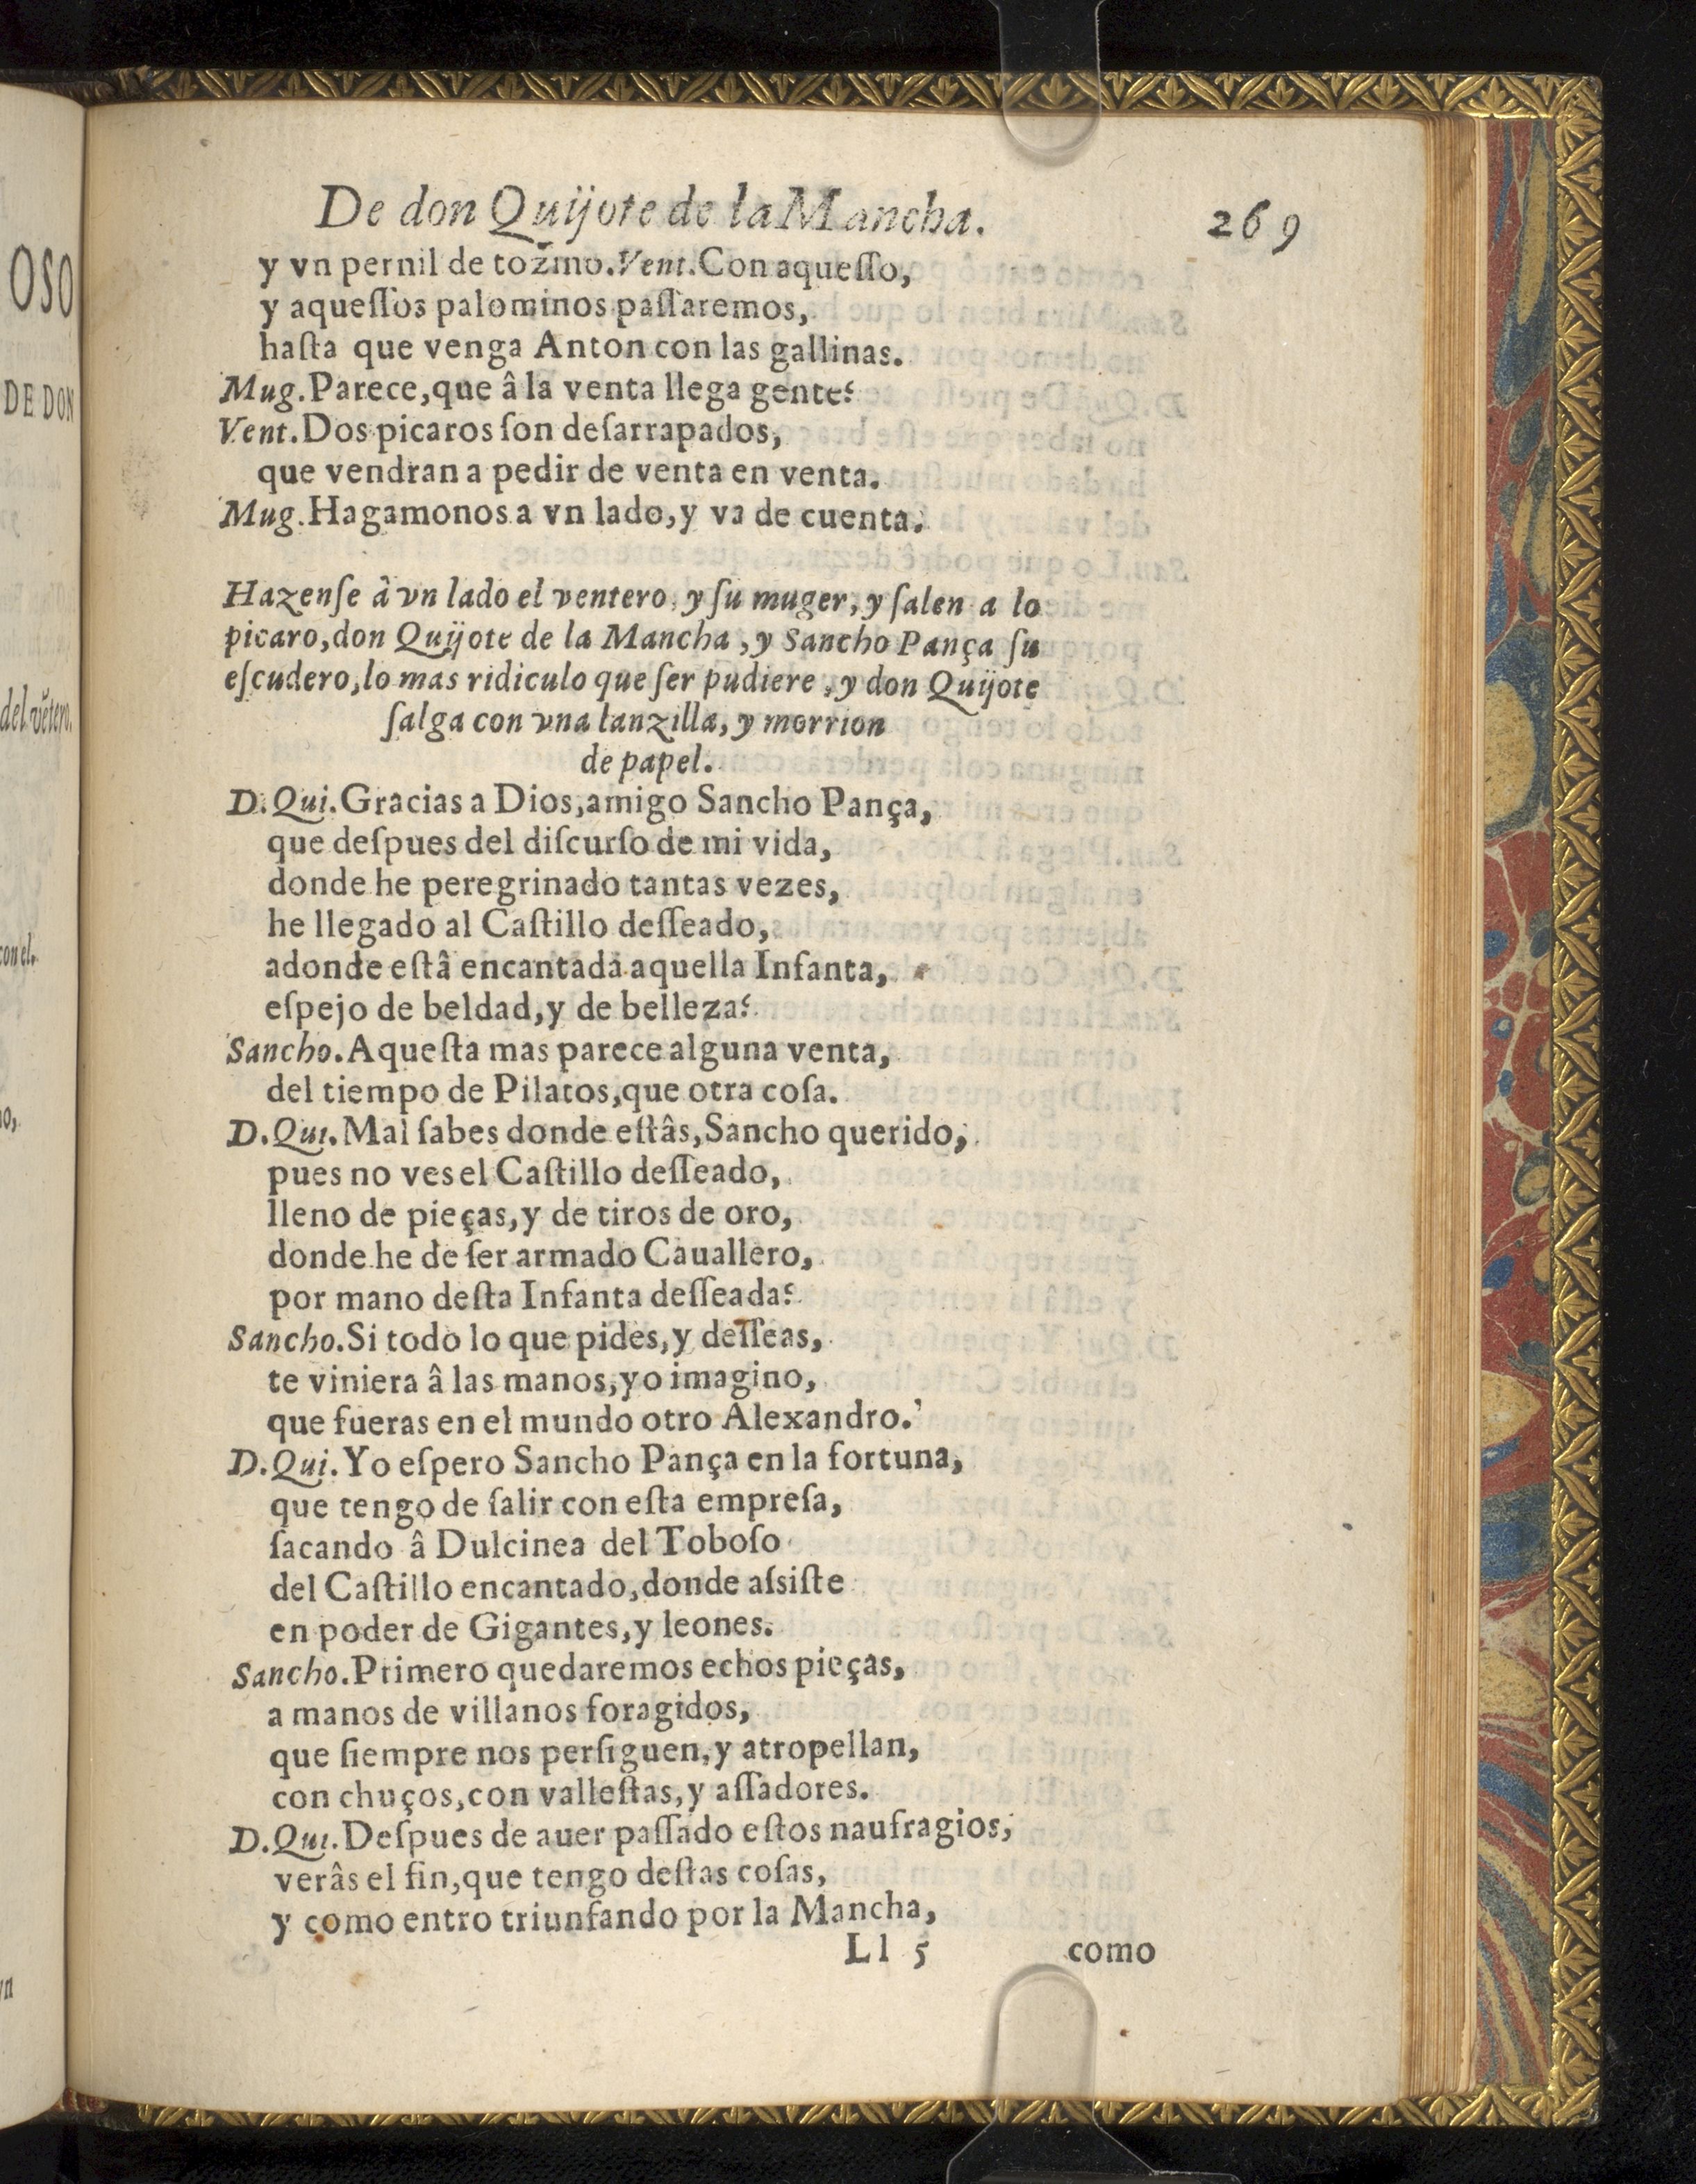 OSO
DE DON
del vẽtero.
con el.
De don Quijote de la Mancha.
269
y vn pernil de tozino. Vent. Con aqueſſo,
y aqueſſos palominos paſſaremos,
haſta que venga Anton con las gallinas.
Mug. Parece, que â la venta llega gente?
Vent. Dos picaros ſon deſarrapados,
que vendran a pedir de venta en venta.
Mug. Hagamonos a vn lado, y va de cuenta.
Hazenſe â vn lado el ventero, y ſu muger, y ſalen a lo
picaro, don Quijote de la Mancha, y Sancho Pança ſu
eſcudero, lo mas ridiculo que ſer pudiere, y don Quijote
ſalga con vna lanzilla, y morrion
de papel.
D. Qui. Gracias a Dios, amigo Sancho Pança,
que deſpues del diſcurſo de mi vida,
donde he peregrinado tantas vezes,
he llegado al Caſtillo deſſeado,
adonde eſtâ encantada aquella Infanta,
eſpejo de beldad, y de belleza?
Sancho. Aqueſta mas parece alguna venta,
del tiempo de Pilatos, que otra coſa.
D. Qui. Mal ſabes donde eſtâs, Sancho querido,
pues no ves el Caſtillo deſſeado,
lleno de pieças, y de tiros de oro,
donde he de ſer armado Cauallero,
por mano deſta Infanta deſſeada?
Sancho. Si todo lo que pides, y deſſeas,
te viniera â las manos, yo imagino,
que fueras en el mundo otro Alexandro.
D. Qui. Yo eſpero Sancho Pança en la fortuna,
que tengo de ſalir con eſta empreſa,
ſacando â Dulcinea del Toboſo
del Caſtillo encantado, donde aſsiſte
en poder de Gigantes, y leones.
Sancho. Primero quedaremos echos pieças,
a manos de villanos foragidos,
que ſiempre nos perſiguen, y atropellan,
con chuços, con valleſtas, y aſſadores.
D. Qui. Deſpues de auer paſſado eſtos naufragios,
verâs el fin, que tengo deſtas coſas,
y como entro triunfando por la Mancha,
Ll 5
como